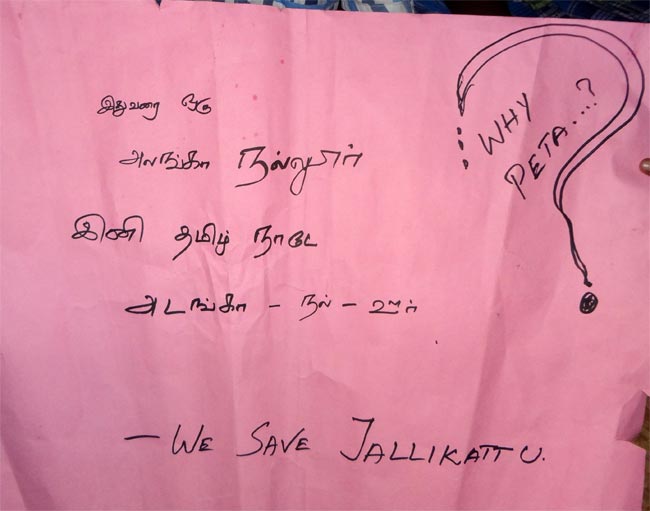 இதுவரை ஒரு
அலங்கா நல்லூர்
இனி தமிழ் நாடே
அடங்கா - நல் - ஊர்
WHY
PETA....?
- WE SAVE JALLIKATTU.